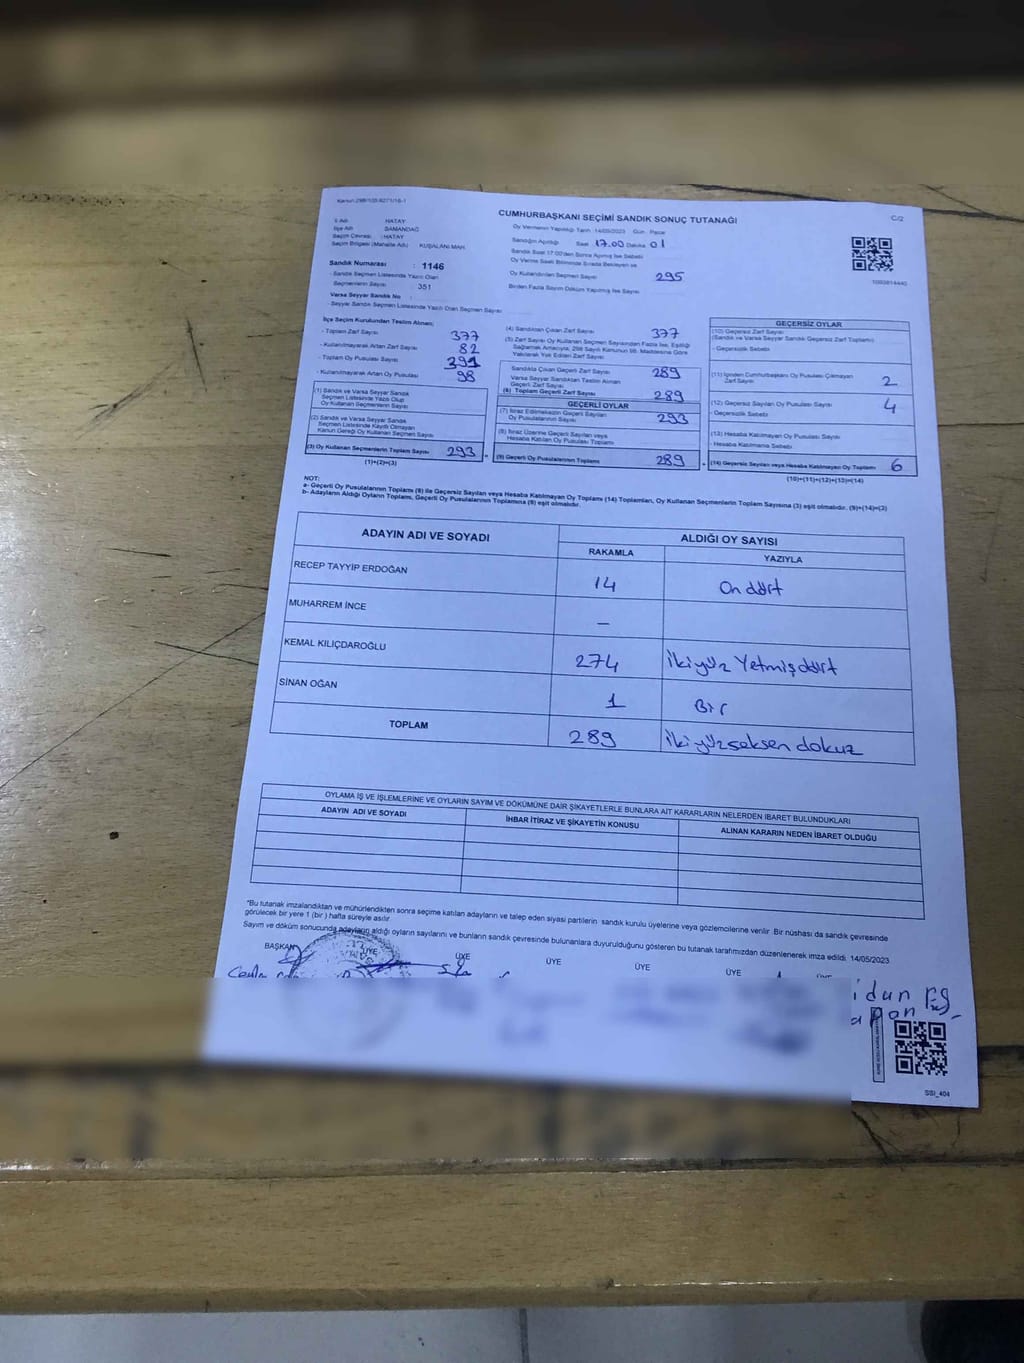 Kanun 298/105-6271/16-1
CUMHURBAŞKANI SEÇİMİ SANDIK SONUÇ TUTANAĞI
C/2
İl Adı HATAY
İlçe Adı SAMANDAĞ
Seçim Çevresi : HATAY
Seçim Bölgesi (Mahalle Adı) KUŞALANI MAH.
Sandık Numarası : 1146
- Sandık Seçmen Listesinde Yazılı Olan
Seçmenlerin Sayısı : 351
Varsa Seyyar Sandık No :
- Seyyar Sandık Seçmen Listesinde Yazılı Olan Seçmen Sayısı
Oy Vermenin Yapıldığı Tarih 14/05/2023 Gün : Pazar
Sandığın Açıldığı Saat 17.00 Dakika 01
Sandık Saat 17:00'den Sonra Açılmış İse Sebebi
Oy Verme Saati Bitiminde Sırada Bekleyen ve
Oy Kullandırılan Seçmen Sayısı 295
Birden Fazla Sayım Döküm Yapılmış İse Sayısı
İlçe Seçim Kurulundan Teslim Alınan;
- Toplam Zarf Sayısı 377
- Kullanılmayarak Artan Zarf Sayısı 82
- Toplam Oy Pusulası Sayısı 391
- Kullanılmayarak Artan Oy Pusulası 98
(1) Sandık ve Varsa Seyyar Sandık
Seçmen Listesinde Yazılı Olup
Oy Kullanan Seçmenlerin Sayısı
(2) Sandık ve Varsa Seyyar Sandık
Seçmen Listesinde Kayıtlı Olmayan
Kanun Gereği Oy Kullanan Seçmen Sayısı
(3) Oy Kullanan Seçmenlerin Toplam Sayısı 293
(1)+(2)=(3)
(4) Sandıktan Çıkan Zarf Sayısı 377
(5) Zarf Sayısı Oy Kullanan Seçmen Sayısından Fazla İse, Eşitliği
Sağlamak Amacıyla, 298 Sayılı Kanunun 98. Maddesine Göre
Yakılarak Yok Edilen Zarf Sayısı
Sandıkta Çıkan Geçerli Zarf Sayısı 289
Varsa Seyyar Sandıktan Teslim Alınan
Geçerli Zarf Sayısı
(6) Toplam Geçerli Zarf Sayısı 289
GEÇERLİ OYLAR
(7) İtiraz Edilmeksizin Geçerli Sayılan
Oy Pusulalarının Sayısı 293
(8) İtiraz Üzerine Geçerli Sayılan veya
Hesaba Katılan Oy Pusulası Toplamı
(9) Geçerli Oy Pusulalarının Toplamı 289
GEÇERSİZ OYLAR
(10) Geçersiz Zarf Sayısı
(Sandık ve Varsa Seyyar Sandık Geçersiz Zarf Toplamı)
- Geçersizlik Sebebi
(11) İçinden Cumhurbaşkanı Oy Pusulası Çıkmayan
Zarf Sayısı 2
(12) Geçersiz Sayılan Oy Pusulası Sayısı 4
- Geçersizlik Sebebi
(13) Hesaba Katılmayan Oy Pusulası Sayısı
- Hesaba Katılmama Sebebi
(14) Geçersiz Sayılan veya Hesaba Katılmayan Oy Toplamı 6
(10)+(11)+(12)+(13)=(14)
NOT:
a- Geçerli Oy Pusulalarının Toplamı (9) ile Geçersiz Sayılan veya Hesaba Katılmayan Oy Toplamı (14) Toplamları, Oy Kullanan Seçmenlerin Toplam Sayısına (3) eşit olmalıdır. (9)+(14)=(3)
b- Adayların Aldığı Oyların Toplamı, Geçerli Oy Pusulalarının Toplamına (9) eşit olmalıdır.
ADAYIN ADI VE SOYADI ALDIĞI OY SAYISI
RAKAMLA YAZIYLA
RECEP TAYYİP ERDOĞAN 14 On dört
MUHARREM İNCE –
KEMAL KILIÇDAROĞLU 274 İkiyüz Yetmişdört
SİNAN OĞAN 1 Bir
TOPLAM 289 İkiyüzseksen dokuz
OYLAMA İŞ VE İŞLEMLERİNE VE OYLARIN SAYIM VE DÖKÜMÜNE DAİR ŞİKAYETLERLE BUNLARA AİT KARARLARIN NELERDEN İBARET BULUNDUKLARI
ADAYIN ADI VE SOYADI İHBAR İTİRAZ VE ŞİKAYETİN KONUSU ALINAN KARARIN NEDEN İBARET OLDUĞU
*Bu tutanak imzalandıktan ve mühürlendikten sonra seçime katılan adayların ve talep eden siyasi partilerin sandık kurulu üyelerine veya gözlemcilerine verilir. Bir nüshası da sandık çevresinde
görülecek bir yere 1 (bir) hafta süreyle asılır.
Sayım ve döküm sonucunda adayların aldığı oyların sayılarını ve bunların sandık çevresinde bulunanlara duyurulduğunu gösteren bu tutanak tarafımızdan düzenlenerek imza edildi. 14/05/2023
BAŞKAN ÜYE ÜYE ÜYE ÜYE ÜYE ÜYE
SSI_404